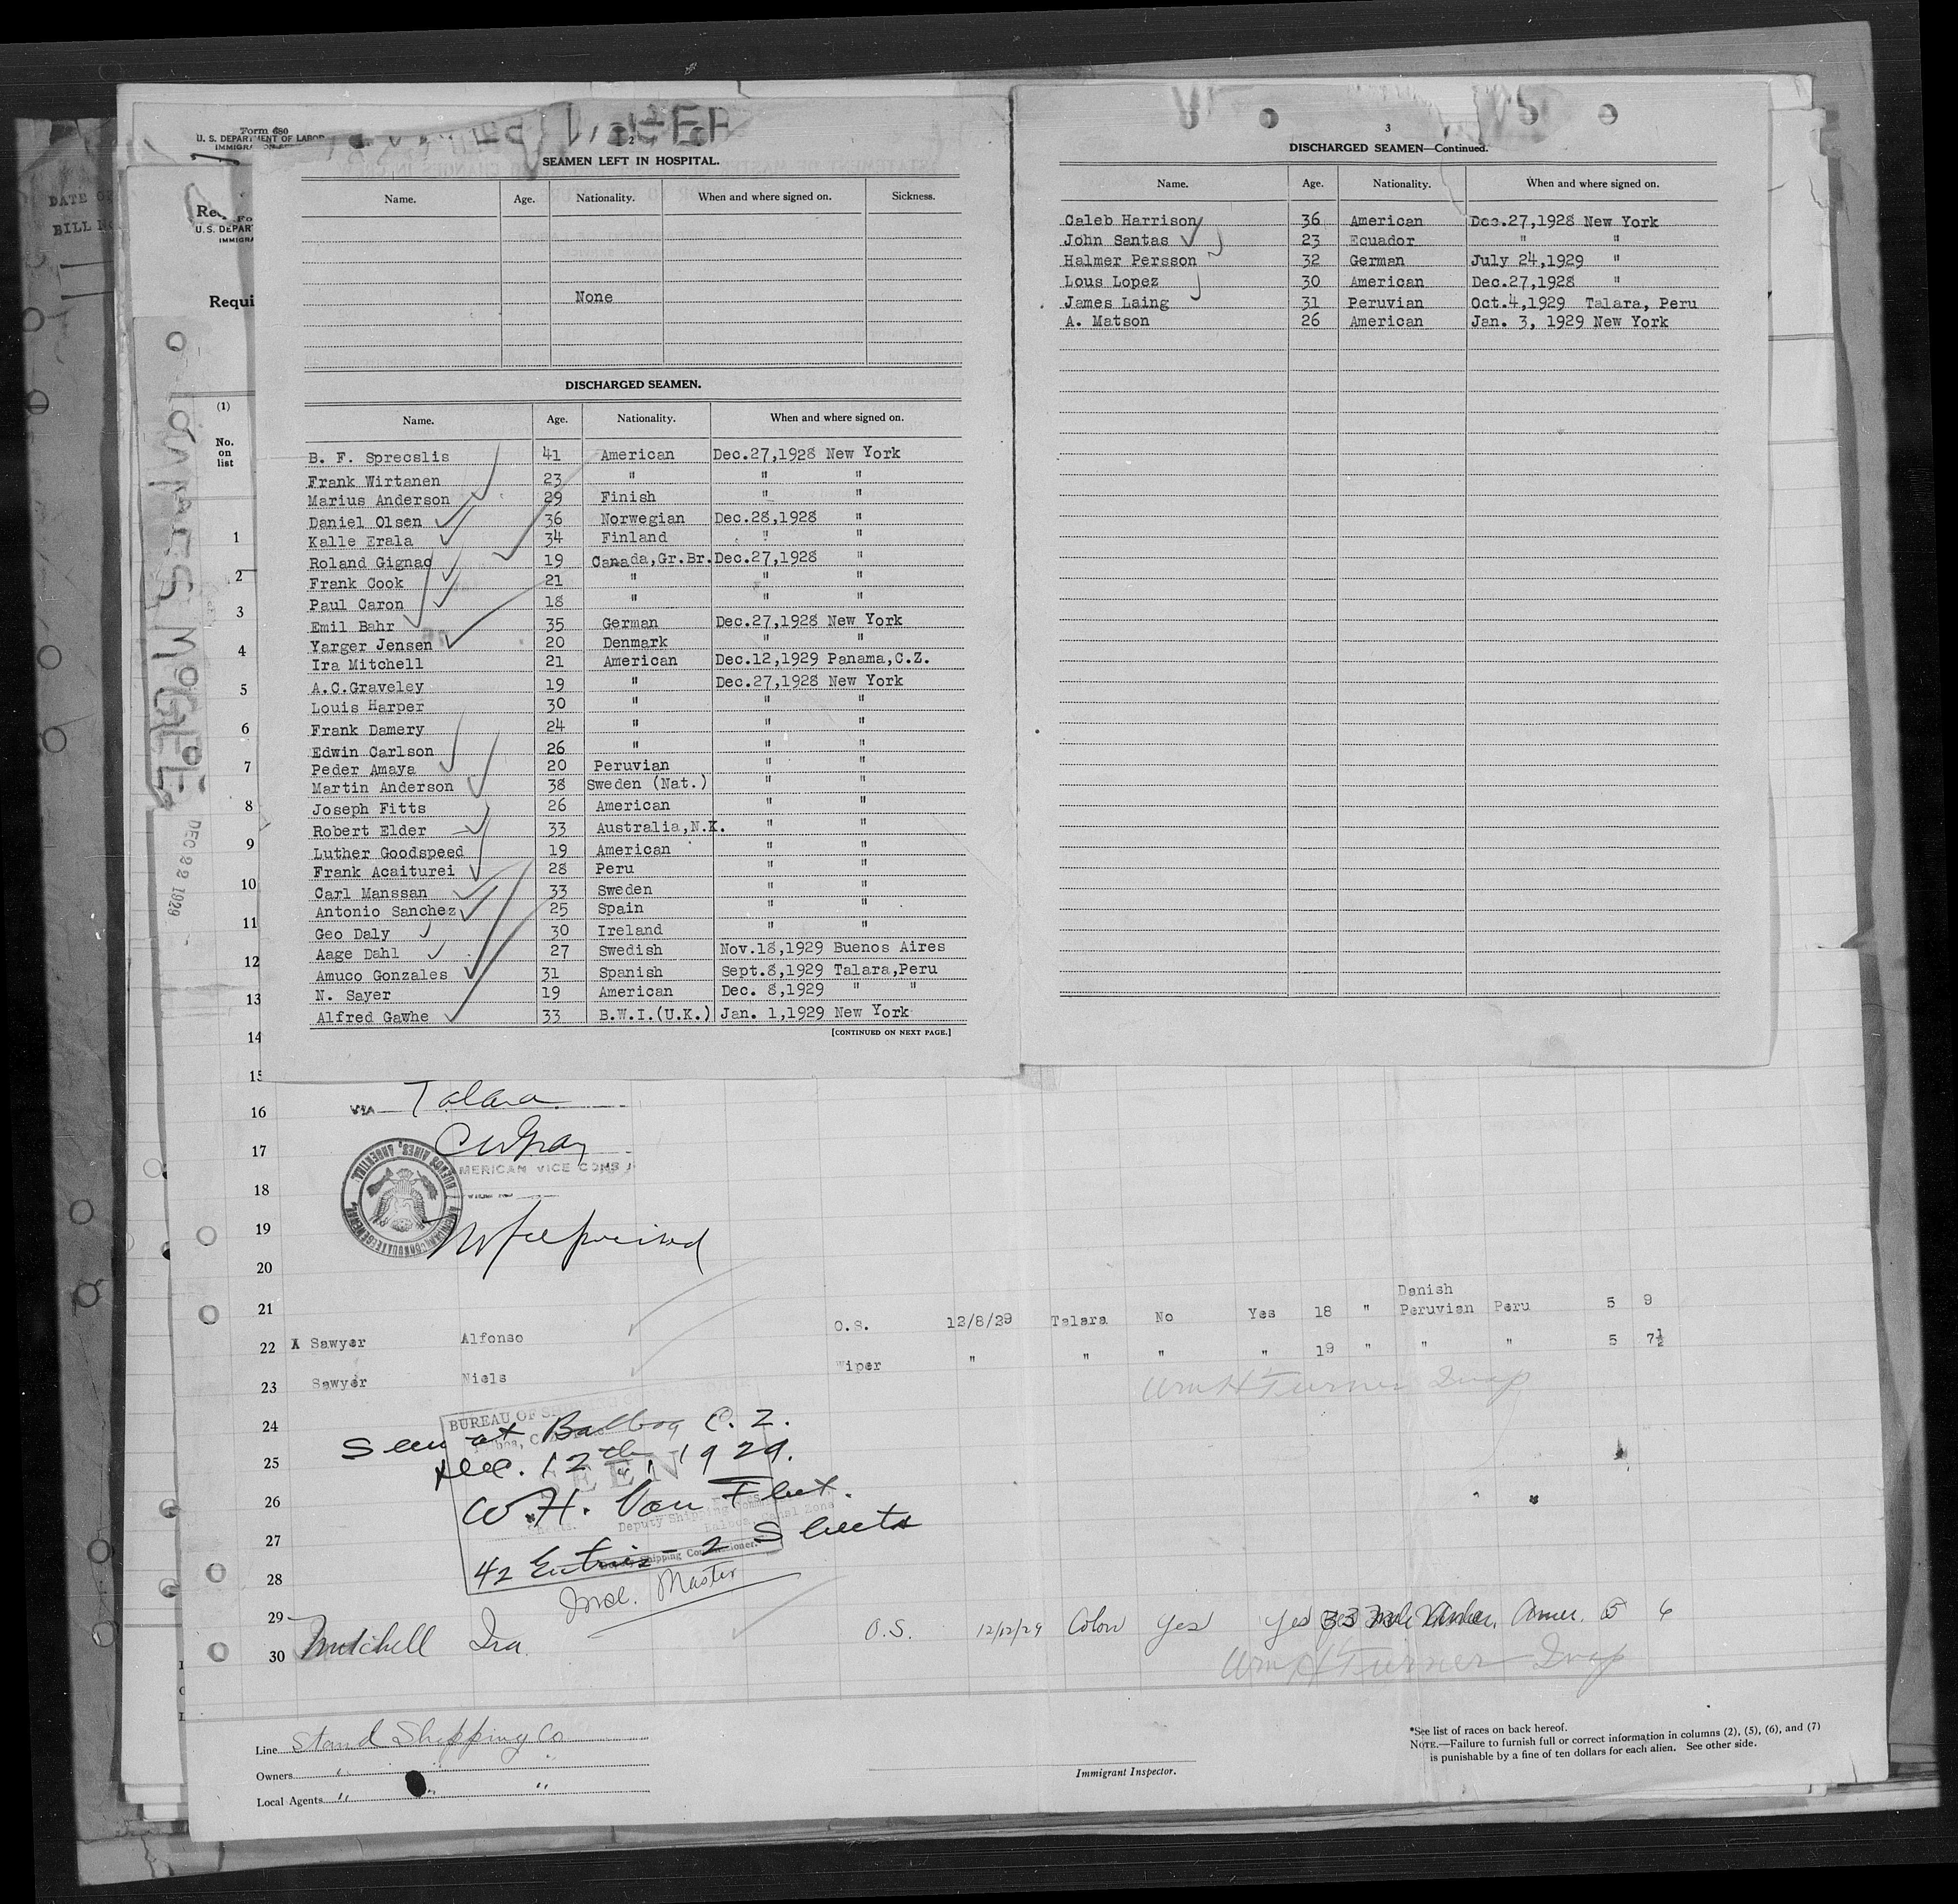 Form 680
U. S. DEPARTMENT OF LABOR
2
SEAMEN LEFT IN HOSPITAL.
Name. Age. Nationality. When and where signed on. Sickness.
None
DISCHARGED SEAMEN.
Name. Age. Nationality. When and where signed on.
B. F. Sprecslis 41 American Dec.27,1928 New York
Frank Wirtanen 23 " " "
Marius Anderson 29 Finish " "
Daniel Olsen 36 Norwegian Dec.28,1928 "
Kalle Erala 34 Finland " "
Roland Gignac 19 Canada,Gr.Br. Dec.27,1928 "
Frank Cook 21 " " "
Paul Caron 18 " " "
Emil Bahr 35 German Dec.27,1928 New York
Yarger Jensen 20 Denmark " "
Ira Mitchell 21 American Dec.12,1929 Panama,C.Z.
A.C.Graveley 19 " Dec.27,1928 New York
Louis Harper 30 " " "
Frank Damery 24 " " "
Edwin Carlson 26 " " "
Peder Amaya 20 Peruvian " "
Martin Anderson 38 Sweden (Nat.) " "
Joseph Fitts 26 American " "
Robert Elder 33 Australia,N.K. " "
Luther Goodspeed 19 American " "
Frank Acaiturei 28 Peru " "
Carl Manssan 33 Sweden " "
Antonio Sanchez 25 Spain " "
Geo Daly 30 Ireland " "
Aage Dahl 27 Swedish Nov.18,1929 Buenos Aires
Amuco Gonzales 31 Spanish Sept.8,1929 Talara,Peru
N. Sayer 19 American Dec. 8,1929 " "
Alfred Gawhe 33 B.W.I.(U.K.) Jan. 1,1929 New York
[CONTINUED ON NEXT PAGE.]
3
DISCHARGED SEAMEN—Continued.
Name. Age. Nationality. When and where signed on.
Caleb Harrison 36 American Dec.27,1928 New York
John Santas 23 Ecuador " "
Halmer Persson 32 German July 24,1929 "
Lous Lopez 30 American Dec.27,1928 "
James Laing 31 Peruvian Oct.4,1929 Talara, Peru
A. Matson 26 American Jan. 3, 1929 New York
DATE OF
BILL
U. S. DEPAR
IMMIGRA
Requi
(1)
No.
on
list
1
2
3
4
5
6
7
8
9
10
11
12
13
14
15
16
17
18
19
20
21
22
23
24
25
26
27
28
29
30
JAMES McGEE
DEC 22 1929
VIA Talara
AMERICAN VICE CONSU
AMERICAN CONSULATE-GENERAL
BUENOS AIRES, ARGENTINA.
No fee prescribed
Danish
X Sawyer Alfonso O.S. 12/8/29 Talara No Yes 18 " Peruvian Peru 5 9
Sawyer Niels Wiper " " " " 19 " " " 5 7½
Wm H Turner Insp
BUREAU OF
SEEN
Seen at Balboa C.Z.
Dec. 12th, 1929.
W.H. Van Fleet.
Deputy Shipping Commissioner.
42 Entries - 2 Sheets
Incl. Master
Mitchell Ira O.S. 12/12/29 Colon Yes Yes 33 Amer. 5 6
Wm H Turner Insp
Line Stand Shipping Co
Owners " "
Local Agents " "
Immigrant Inspector.
*See list of races on back hereof.
NOTE.—Failure to furnish full or correct information in columns (2), (5), (6), and (7)
is punishable by a fine of ten dollars for each alien. See other side.